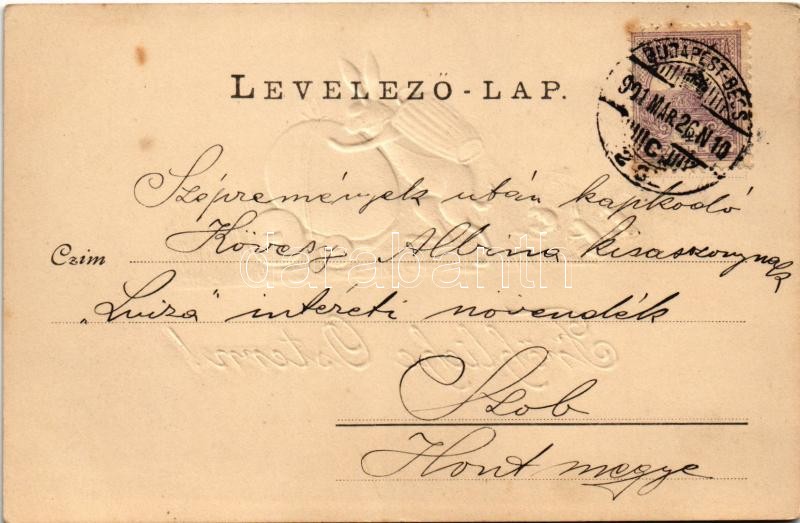 LEVELEZŐ-LAP.
BUDAPEST-BÉCS
901 MAR 26 N 10
C
23
Szépremények után kapkodó
Czim Kövesy Albina kisaszonynak
"Luiza" intézeti növendék
darabanth
Fröhliche Ostern!
Szob
Hont megye